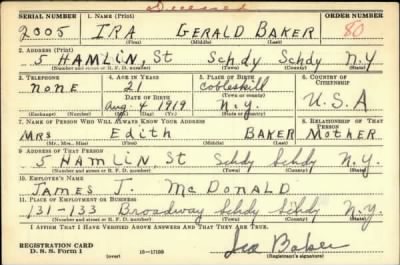 Deceased
SERIAL NUMBER 1. NAME (Print) ORDER NUMBER
2005 IRA GERALD BAKER 80
(First) (Middle) (Last)
2. ADDRESS (Print)
5 HAMLIN, St Schdy Schdy N.Y
(Number and street or R. F. D. number) (Town) (County) (State)
3. TELEPHONE 4. AGE IN YEARS 5. PLACE OF BIRTH 6. COUNTRY OF CITIZENSHIP
none 21 Cobleskill
DATE OF BIRTH (Town or county)
Aug 4 1919 N.Y. U.S.A
(Exchange) (Number) (Mo.) (Day) (Yr.) (State or country)
7. NAME OF PERSON WHO WILL ALWAYS KNOW YOUR ADDRESS 8. RELATIONSHIP OF THAT PERSON
Mrs Edith BAKER Mother
(Mr., Mrs., Miss) (First) (Middle) (Last)
9. ADDRESS OF THAT PERSON
5 HAMLIN, St Schdy Schdy N.Y.
(Number and street or R. F. D. number) (Town) (County) (State)
10. EMPLOYER'S NAME
JAMES J. McDONALD
11. PLACE OF EMPLOYMENT OR BUSINESS
131-133 Broadway Schdy Schdy N.Y.
(Number and street or R. F. D. number) (Town) (County) (State)
I AFFIRM THAT I HAVE VERIFIED ABOVE ANSWERS AND THAT THEY ARE TRUE.
REGISTRATION CARD
D. S. S. Form 1 (over) 16—17105 Ira Baker
(Registrant's signature)